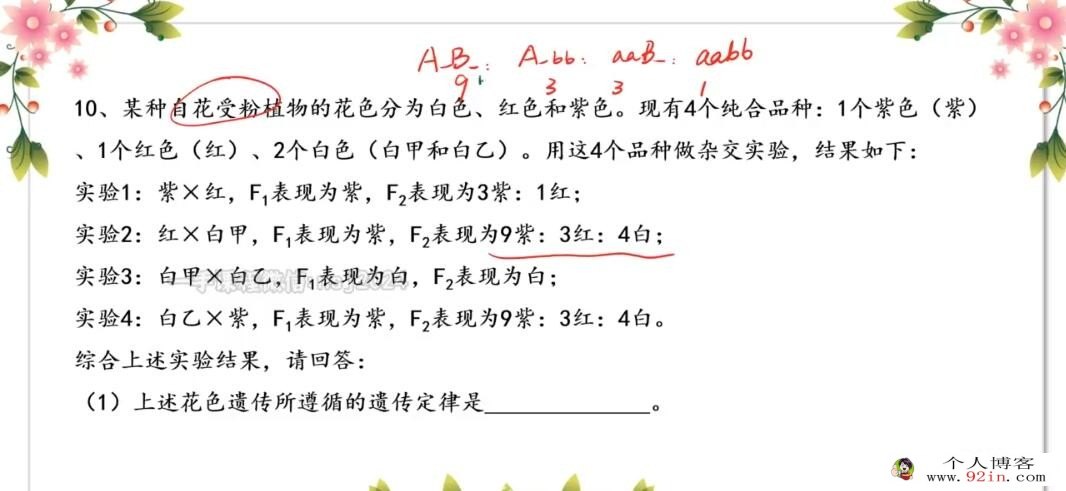 A_B_: A_bb: aaB_: aabb
9: 3 3 1
10、某种自花受粉植物的花色分为白色、红色和紫色。现有4个纯合品种：1个紫色（紫）
、1个红色（红）、2个白色（白甲和白乙）。用这4个品种做杂交实验，结果如下：
实验1：紫×红，F₁表现为紫，F₂表现为3紫：1红；
实验2：红×白甲，F₁表现为紫，F₂表现为9紫：3红：4白；
实验3：白甲×白乙，F₁表现为白，F₂表现为白；
实验4：白乙×紫，F₁表现为紫，F₂表现为9紫：3红：4白。
综合上述实验结果，请回答：
（1）上述花色遗传所遵循的遗传定律是____________。
个人博客
www.92in.com